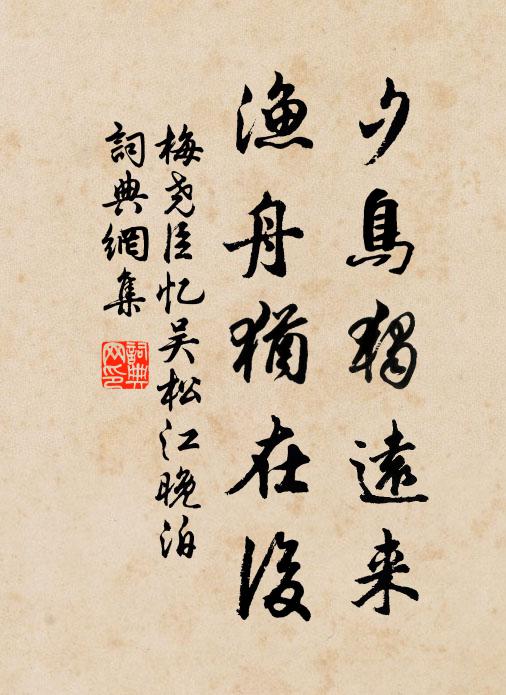 夕鳥獨遠来
漁舟猶在後
梅尧臣忆吴松江晚泊
詞典網集
詞典網印